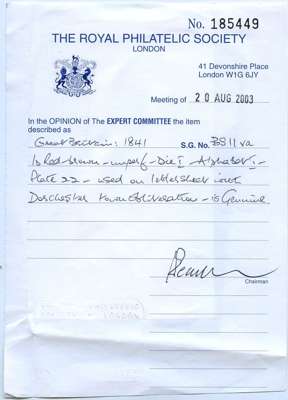 No. 185449
THE ROYAL PHILATELIC SOCIETY
LONDON
41 Devonshire Place
London W1G 6JY
Meeting of 20 AUG 2003
In the OPINION of The EXPERT COMMITTEE the item
described as
Great Britain: 1841 S.G. No. BS11va
1d Red-brown - imperf - Die I Alphabet I -
Plate 22 - used on lettersheet with
Dorchester town obliteration - is Genuine
Chairman